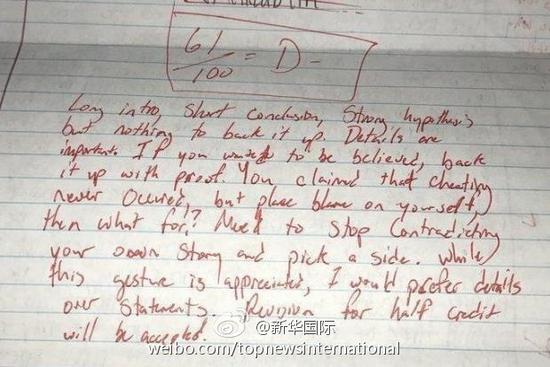 61/100 = D-
Long intro, Short Conclusion, Strong hypothesis
but nothing to back it up. Details are
important. If you want to be believed, back
it up with proof. You claimed that cheating
never Occured, but place blame on yourself,
then what for? Need to Stop Contradicting
your own Story and pick a side. While
this gesture is appreciated, I would prefer details
over Statements. Revision for half credit
will be accepted.
@新华国际
weibo.com/topnewsinternational